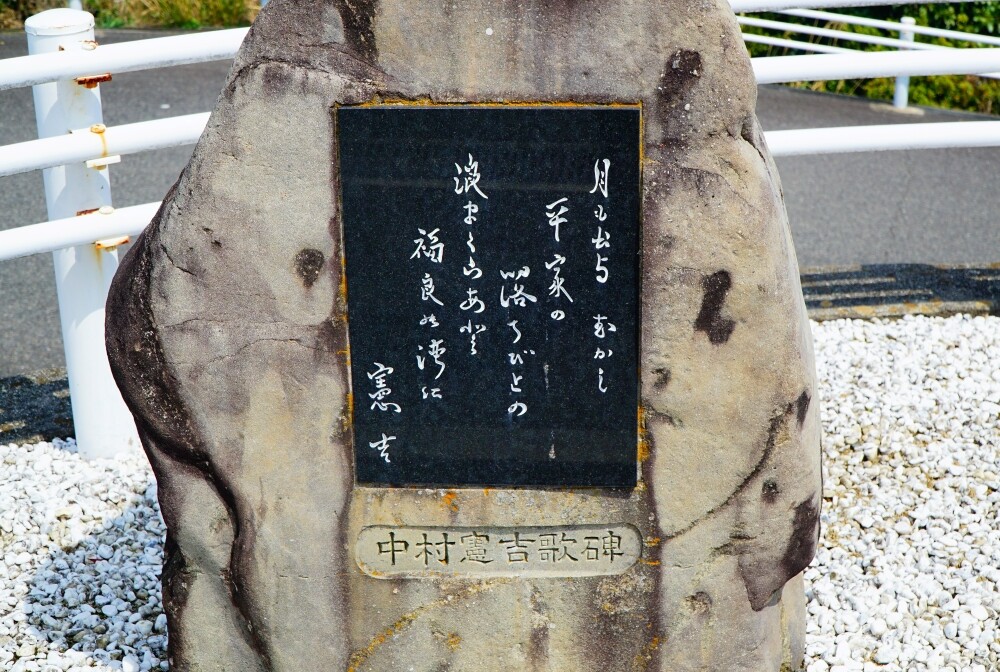 月も出与 むかし
平家の
落ちびとの
浪まくら
福良の湾に
憲吉
中村憲吉歌碑